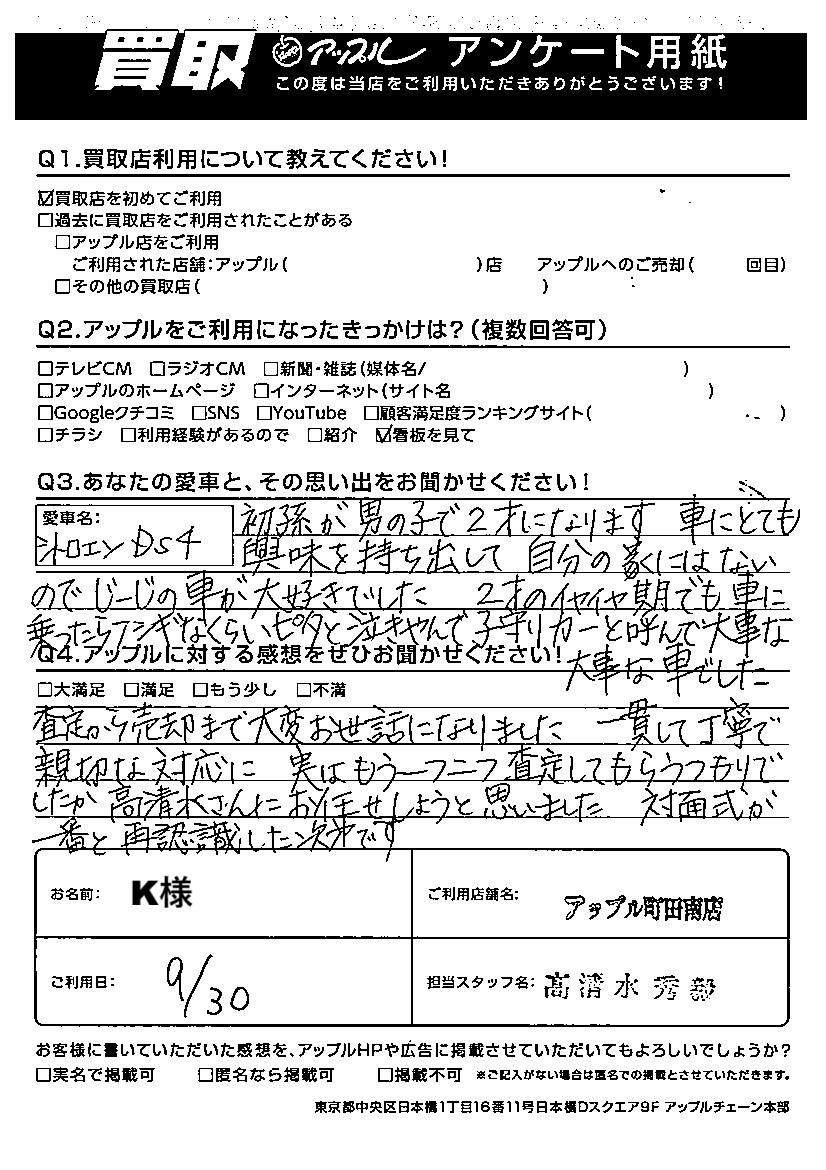 買取 アップル アンケート用紙
この度は当店をご利用いただきありがとうございます!
Q1.買取店利用について教えてください!
☑買取店を初めてご利用
□過去に買取店をご利用されたことがある
□アップル店をご利用
ご利用された店舗:アップル( )店 アップルへのご売却( 回目)
□その他の買取店( )
Q2.アップルをご利用になったきっかけは?(複数回答可)
□テレビCM □ラジオCM □新聞・雑誌(媒体名/ )
□アップルのホームページ □インターネット(サイト名 )
□Googleクチコミ □SNS □YouTube □顧客満足度ランキングサイト( )
□チラシ □利用経験があるので □紹介 ☑看板を見て
Q3.あなたの愛車と、その思い出をお聞かせください!
愛車名:
シトロエン DS4
初孫が男の子で2才になります 車にとても
興味を持ち出して 自分の家にはない
のでじーじの車が大好きでした 2才のイヤイヤ期でも車に
乗ったらアンギなくらいピタと泣きやんで子守りカーと呼んで大事な
Q4.アップルに対する感想をぜひお聞かせください!
大事な車でした
□大満足 □満足 □もう少し □不満
査定から売却まで大変お世話になりました 一貫して丁寧で
親切な対応に 実はもう一つ二つ査定してもらうつもりで
したが 高清水さんにお任せしようと思いました 対面式が
一番と再認識した次第です
お名前: K様
ご利用店舗名: アップル町田南店
ご利用日: 9/30
担当スタッフ名: 高清水 秀毅
お客様に書いていただいた感想を、アップルHPや広告に掲載させていただいてもよろしいでしょうか?
□実名で掲載可 □匿名なら掲載可 □掲載不可 ※ご記入がない場合は匿名での掲載とさせていただきます。
東京都中央区日本橋1丁目16番11号日本橋Dスクエア9F アップルチェーン本部